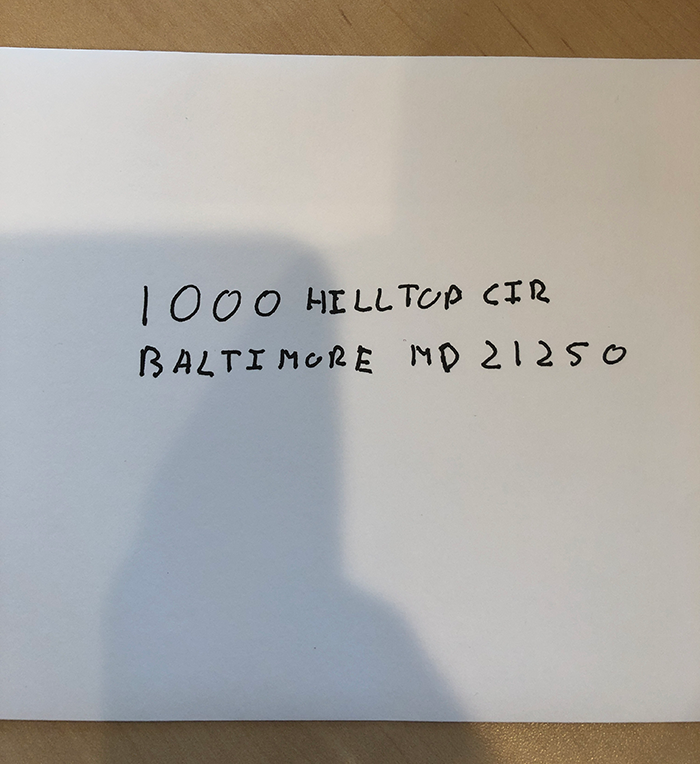 1000 HILLTOP CIR
BALTIMORE MD 21250